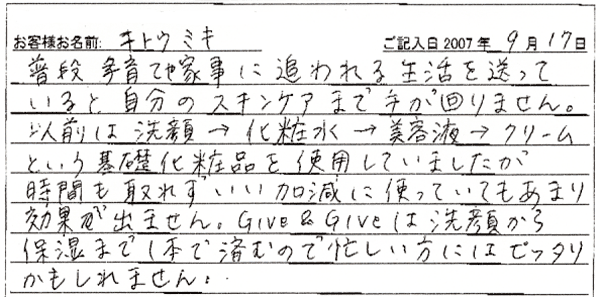 お客様お名前: キトウ ミキ ご記入日 2007年 9月 17日
普段 子育てや家事に追われる生活を送って
いると自分のスキンケアまで手が回りません。
以前は洗顔→化粧水→美容液→クリーム
という基礎化粧品を使用していましたが
時間も取れずいい加減に使っていてもあまり
効果が出ません。GIVE&GIVEは洗顔から
保湿まで1本で済むので忙しい方にはピッタリ
かもしれません。